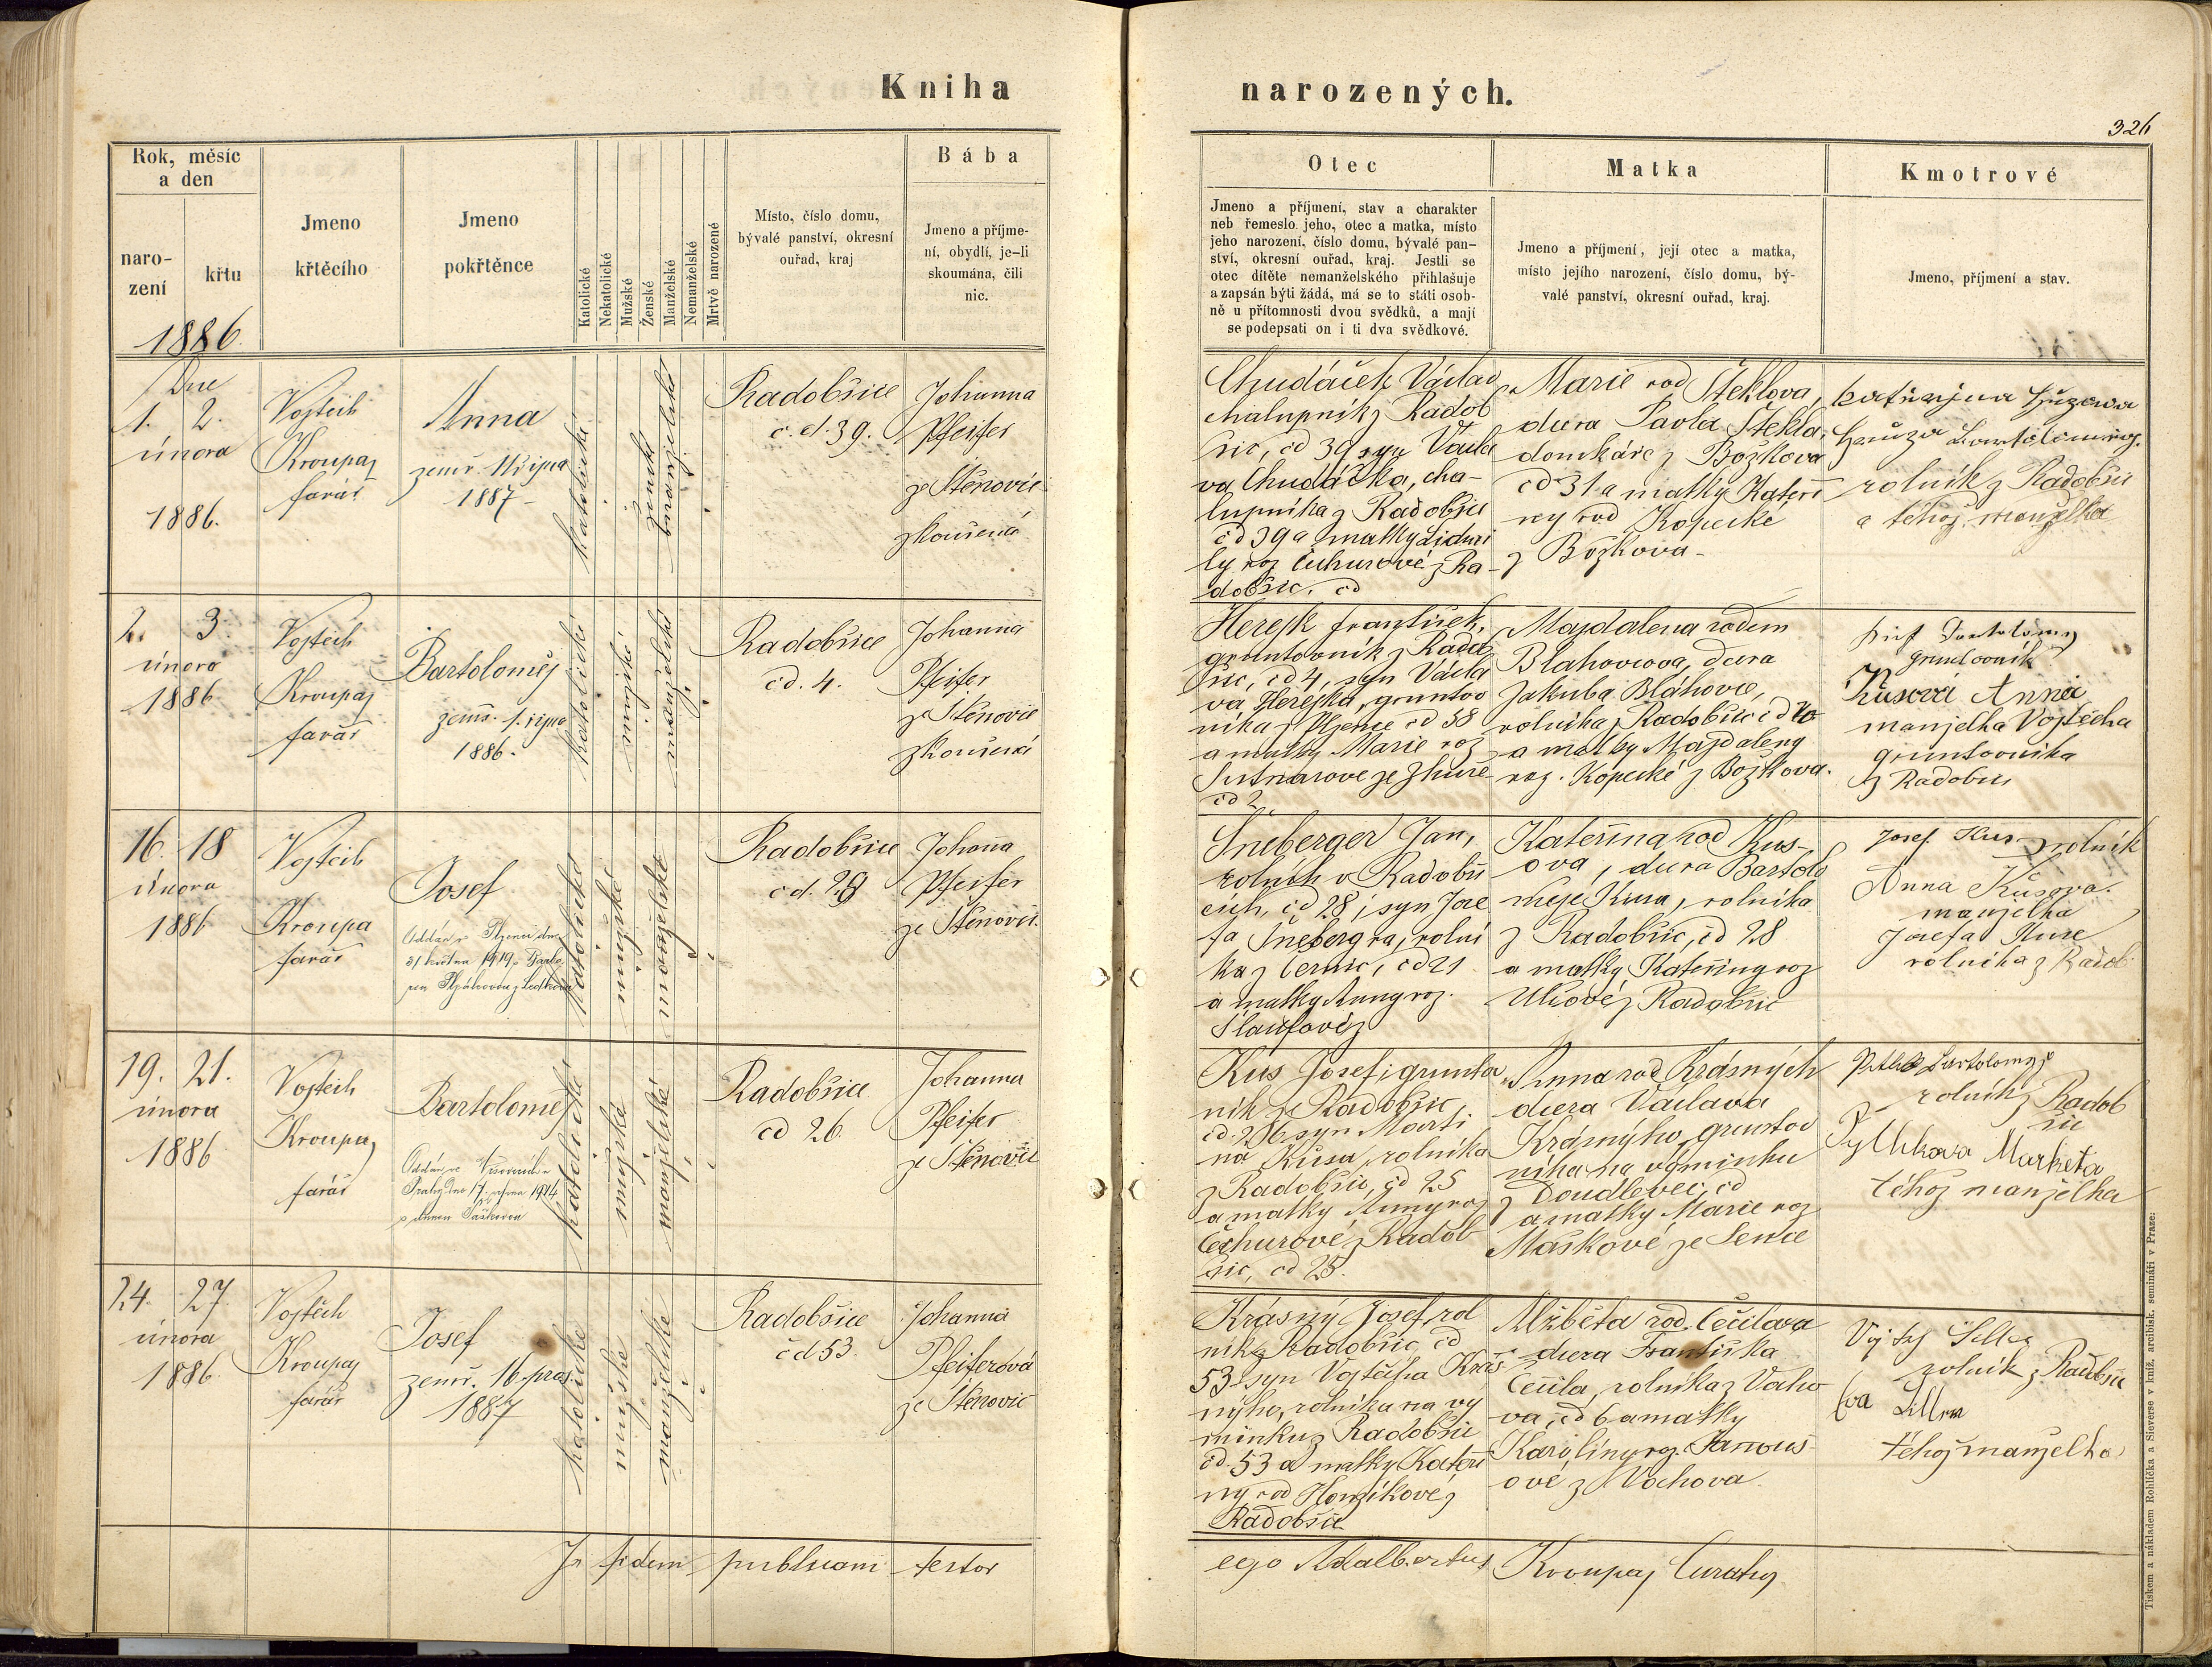 Kniha narozených.
326
Rok, měsíc
a den
naro-
zení
křtu
1886.
Jmeno
křtěcího
Jmeno
pokřtěnce
Katolické
Nekatolické
Mužské
Ženské
Manželské
Nemanželské
Mrtvě narozené
Místo, číslo domu,
bývalé panství, okresní
ouřad, kraj
Bába
Jmeno a příjme-
ní, obydlí, je-li
skoumána, čili
nic.
Otec
Jmeno a příjmení, stav a charakter
neb řemeslo jeho, otec a matka, místo
jeho narození, číslo domu, bývalé pan-
ství, okresní ouřad, kraj. Jestli se
otec dítěte nemanželského přihlašuje
a zapsán býti žádá, má se to státi osob-
ně u přítomnosti dvou svědků, a mají
se podepsati on i ti dva svědkové.
Matka
Jmeno a příjmení, její otec a matka,
místo jejího narození, číslo domu, bý-
valé panství, okresní ouřad, kraj.
Kmotrové
Jmeno, příjmení a stav.
Dne
1. 2.
února
1886.
Vojtěch
Kroupa
farář
Anna
zemř. 11 října
1887
katolické
ženské
manželské
Radobšice
č.d. 39.
Johanna
Pfeifer
ze Štěnovic
zkoušená
Chudáček Václav
chalupník z Radob
šic, čd 39 syn Václa
va Chudáčka, cha-
lupníka z Radobšic
čd 39 a matky Lidmi
ly roz Čechurové z Ra-
dobšic, čd
Marie rod Šteklova,
dcera Pavla Štekla,
domkáře z Božkova
čd 31 a matky Kateři
ny rod Kopecké
z Božkova
rolník z Radobšic
a téhož manželka
2. 3.
února
1886
Vojtěch
Kroupa
farář
Bartoloměj
zemř. 1. října
1886.
katolické
mužské
manželské
Radobšice
čd. 4.
Johanna
Pfeifer
ze Štěnovic
zkoušená
Herejk František,
gruntovník z Radob
šic, čd 4, syn Václa
va Herejka, gruntov
níka z Plzence čd 58
a matky Marie roz
čd 2
Majdalena rodem
Blahovcova, dcera
Jakuba Bláhovce,
rolníka z Radobšic čd 40
a matky Majdaleny
roz. Kopecké z Božkova.
gruntovník
Kusová Anna
manželka Vojtěcha
gruntovníka
z Radobšic
16. 18
února
1886
Vojtěch
Kroupa
farář
Josef
Oddán v Plzni dne
31 května 1919
katolické
mužské
manželské
Radobšice
čd. 28
Johanna
Pfeifer
ze Štěnovic.
Šneberger Jan,
rolník v Radobši
cích, čd 28, syn Jose
fa Šnebergra, rolní
ka z Černic, čd 21
a matky Anny roz.
Šlaufové z
Kateřina rod Kus-
ova, dcera Bartolo
měje Kusa, rolníka
z Radobšic, čd 28
a matky Kateřiny roz
Ulčové z Radobšic
Josef Kus rolník
Anna Kusova
manželka
Josefa Kuse
rolníka z Radob
19. 21.
února
1886
Vojtěch
Kroupa
farář
Bartoloměj
Oddán ve Vršovicích u
Prahy dne 17. 1914
s Annou
katolické
mužské
manželské
Radobšice
čd 26.
Johanna
Pfeifer
ze Štěnovic
Kus Josef, grunto
ník z Radobšic,
čd. 26, syn Marti
na Kusa, rolníka
z Radobšic, čd 25
a matky Anny roz
Čechurové z Radob
šic, čd 25.
Anna rod Krásných
dcera Václava
Krásnýho, gruntov
níka na výminku
z Doudlevec, čd
a matky Marie roz
Maškové ze Sence
Bartolomej
rolník z Radob
šic
Marketa
téhož manželka
24. 27.
února
1886
Vojtěch
Kroupa
farář
Josef
zemř. 16. pros.
1887
katolické
mužské
manželské
Radobšice
čd 53.
Johanna
Pfeiferová
ze Štěnovic
Krásný Josef, rol
ník z Radobšic, čd
53 syn Vojtěcha Krás
nýho, rolníka na vý
minku z Radobšic
čd. 53 a matky Kateři
ny rod Honzíkové z
Radobšic
Alžběta rod. Čečilova
dcera Františka
Čečila, rolníka z Vocho
va, čd 6 a matky
Karolíny roz. Janouš-
ové z Vochova
rolník z Radobšic
Eva
téhož manželka
In fidem publicam testor
ego Adalbertus Kroupa, Curatus
Tiskem a nákladem Rohlíčka a Sieverse v kníž. arcibisk. semináři v Praze.